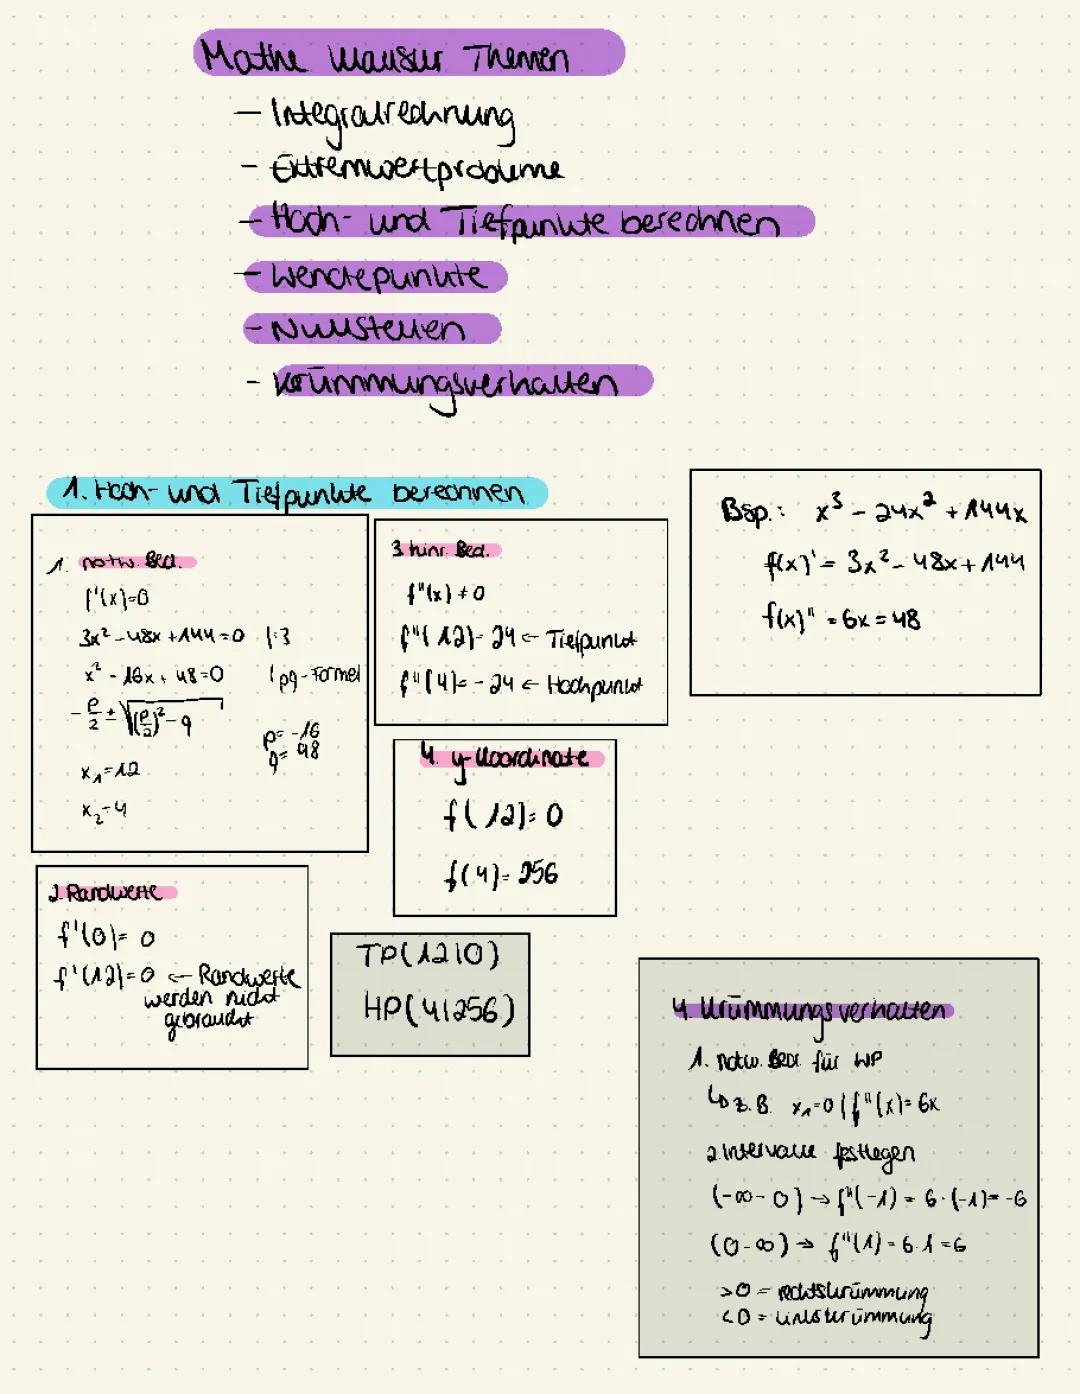 Mathe Klausur Themen
- Integralrechnung
- Extremwertprobleme
- Hoch- und Tiefpunkte berechnen
- Wendepunkte
- Nullstellen
- Krümmungsverhalten
1. Hoch- und Tiefpunkte berechnen
1. notw. Bed.
f'(x)=0
3x² - 48x + 144 = 0 |:3
x² - 16x + 48 = 0 | pq-Formel
- p/2 ± √(p/2)² - q
p = -16
q = 48
x₁ = 12
x₂ = 4
2. Randwerte
f'(0) = 0
f'(12) = 0 ← Randwerte
werden nicht
gebraucht
3. hinr. Bed.
f"(x) ≠ 0
f"(12) = 24 ← Tiefpunkt
f"(4) = -24 ← Hochpunkt
4. y-Koordinate
f(12) = 0
f(4) = 256
TP(12|0)
HP(4|256)
Bsp.: x³ - 24x² + 144x
f(x)' = 3x² - 48x + 144
f(x)" = 6x = 48
4. Krümmungsverhalten
1. notw. Bed. für WP
↳ z.B. x₁=0 | f"(x) = 6x
2. Intervalle festlegen
(-∞ - 0) → f"(-1) = 6·(-1) = -6
(0 - ∞) → f"(1) = 6·1 = 6
>0 = rechtskrümmung
<0 = linkskrümmung